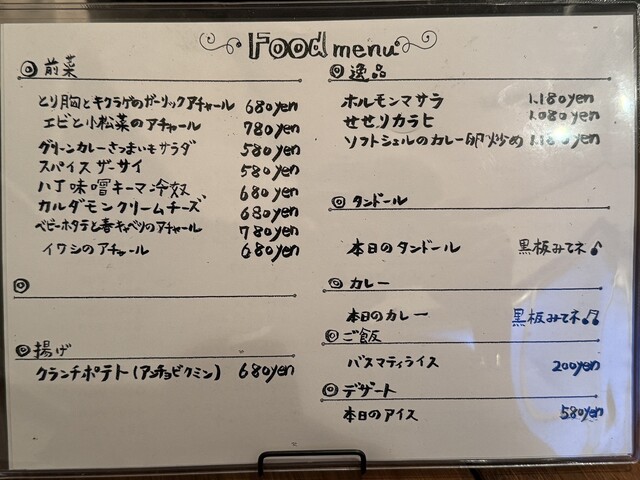 Food menu
前菜
とり胸とキクラゲのガーリックアチャール 680yen
エビと小松菜のアチャール 780yen
グリーンカレーさつまいもサラダ 580yen
スパイスザーサイ 580yen
八丁味噌キーマン冷奴 680yen
カルダモンクリームチーズ 680yen
ベビーホタテと春キャベツのアチャール 780yen
イワシのアチャール 680yen
揚げ
クランチポテト(アンチョビクミン) 680yen
逸品
ホルモンマサラ 1.180yen
せせりカラヒ 1.080yen
ソフトシェルのカレー卵炒め 1.180yen
タンドール
本日のタンドール 黒板みてネ♪
カレー
本日のカレー 黒板みてネ♫
ご飯
バスマティライス 200yen
デザート
本日のアイス 580yen